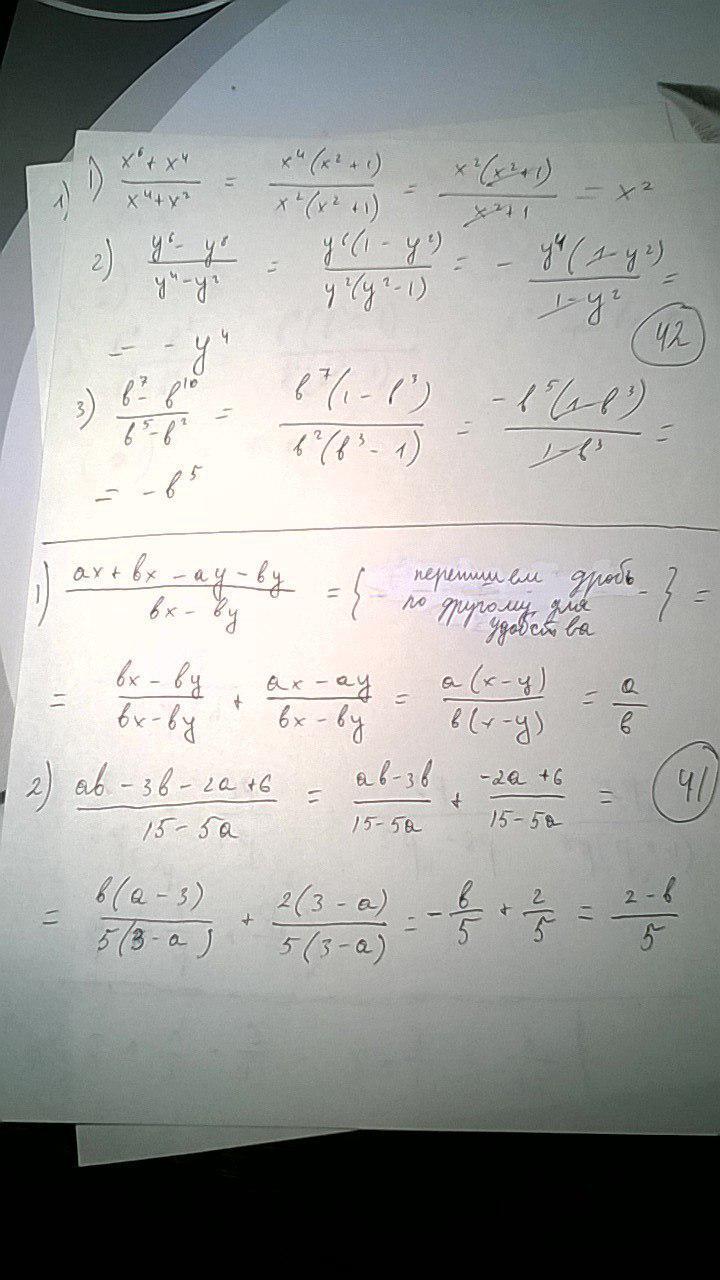 1) 1) (x⁶ + x⁴)/(x⁴ + x²) = (x⁴(x² + 1))/(x²(x² + 1)) = (x²(x² + 1))/(x² + 1) = x²
2) (y⁶ - y⁸)/(y⁴ - y²) = (y⁶(1 - y²))/(y²(y² - 1)) = - (y⁴(1 - y²))/(1 - y²) =
= - y⁴
42
3) (в⁷ - в¹⁰)/(в⁵ - в²) = (в⁷(1 - в³))/(в²(в³ - 1)) = (-в⁵(1 - в³))/(1 - в³) =
= -в⁵
1) (ax + вx - ay - вy)/(вx - вy) = { - перепишем дробь по другому для удобства - } =
= (вx - вy)/(вx - вy) + (ax - ay)/(вx - вy) = (a(x - y))/(в(x - y)) = a/в
2) (aв - 3в - 2a + 6)/(15 - 5a) = (aв - 3в)/(15 - 5a) + (-2a + 6)/(15 - 5a) =
41
= (в(a - 3))/(5(3 - a)) + (2(3 - a))/(5(3 - a)) = - в/5 + 2/5 = (2 - в)/5